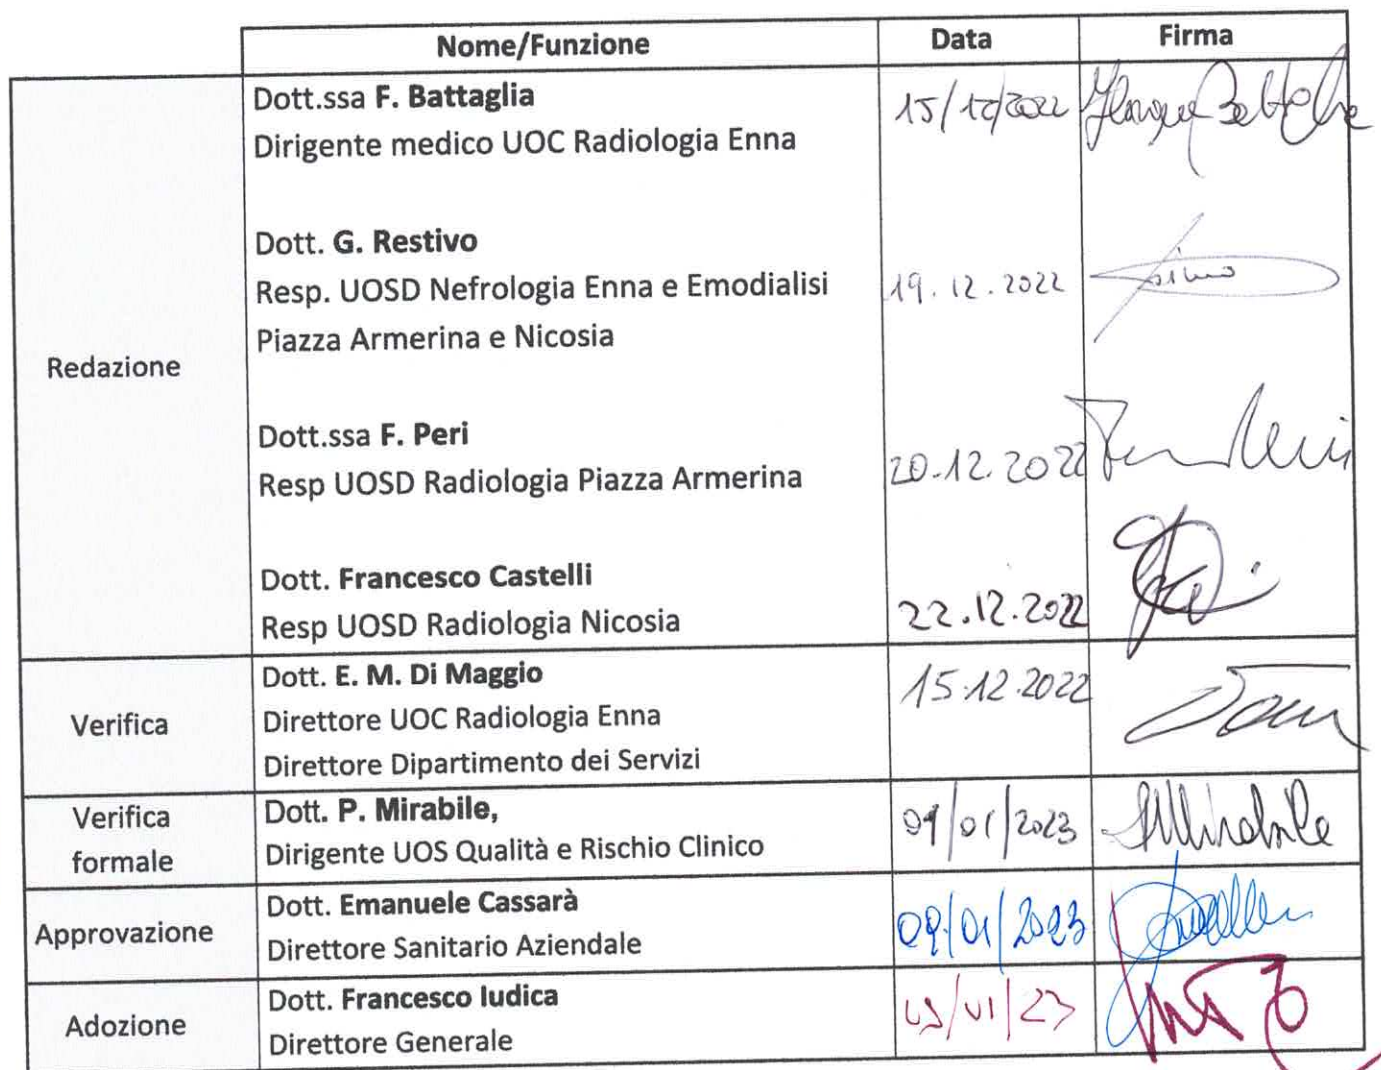 Nome/Funzione Data Firma
Redazione
Dott.ssa F. Battaglia 15/12/2022
Dirigente medico UOC Radiologia Enna
Dott. G. Restivo
Resp. UOSD Nefrologia Enna e Emodialisi 19.12.2022
Piazza Armerina e Nicosia
Dott.ssa F. Peri
Resp UOSD Radiologia Piazza Armerina 20.12.2022
Dott. Francesco Castelli
Resp UOSD Radiologia Nicosia 22.12.2022
Verifica
Dott. E. M. Di Maggio 15.12.2022
Direttore UOC Radiologia Enna
Direttore Dipartimento dei Servizi
Verifica
formale
Dott. P. Mirabile,
Dirigente UOS Qualità e Rischio Clinico
Approvazione
Dott. Emanuele Cassarà
Direttore Sanitario Aziendale 09/01/2023
Adozione
Dott. Francesco Iudica
Direttore Generale